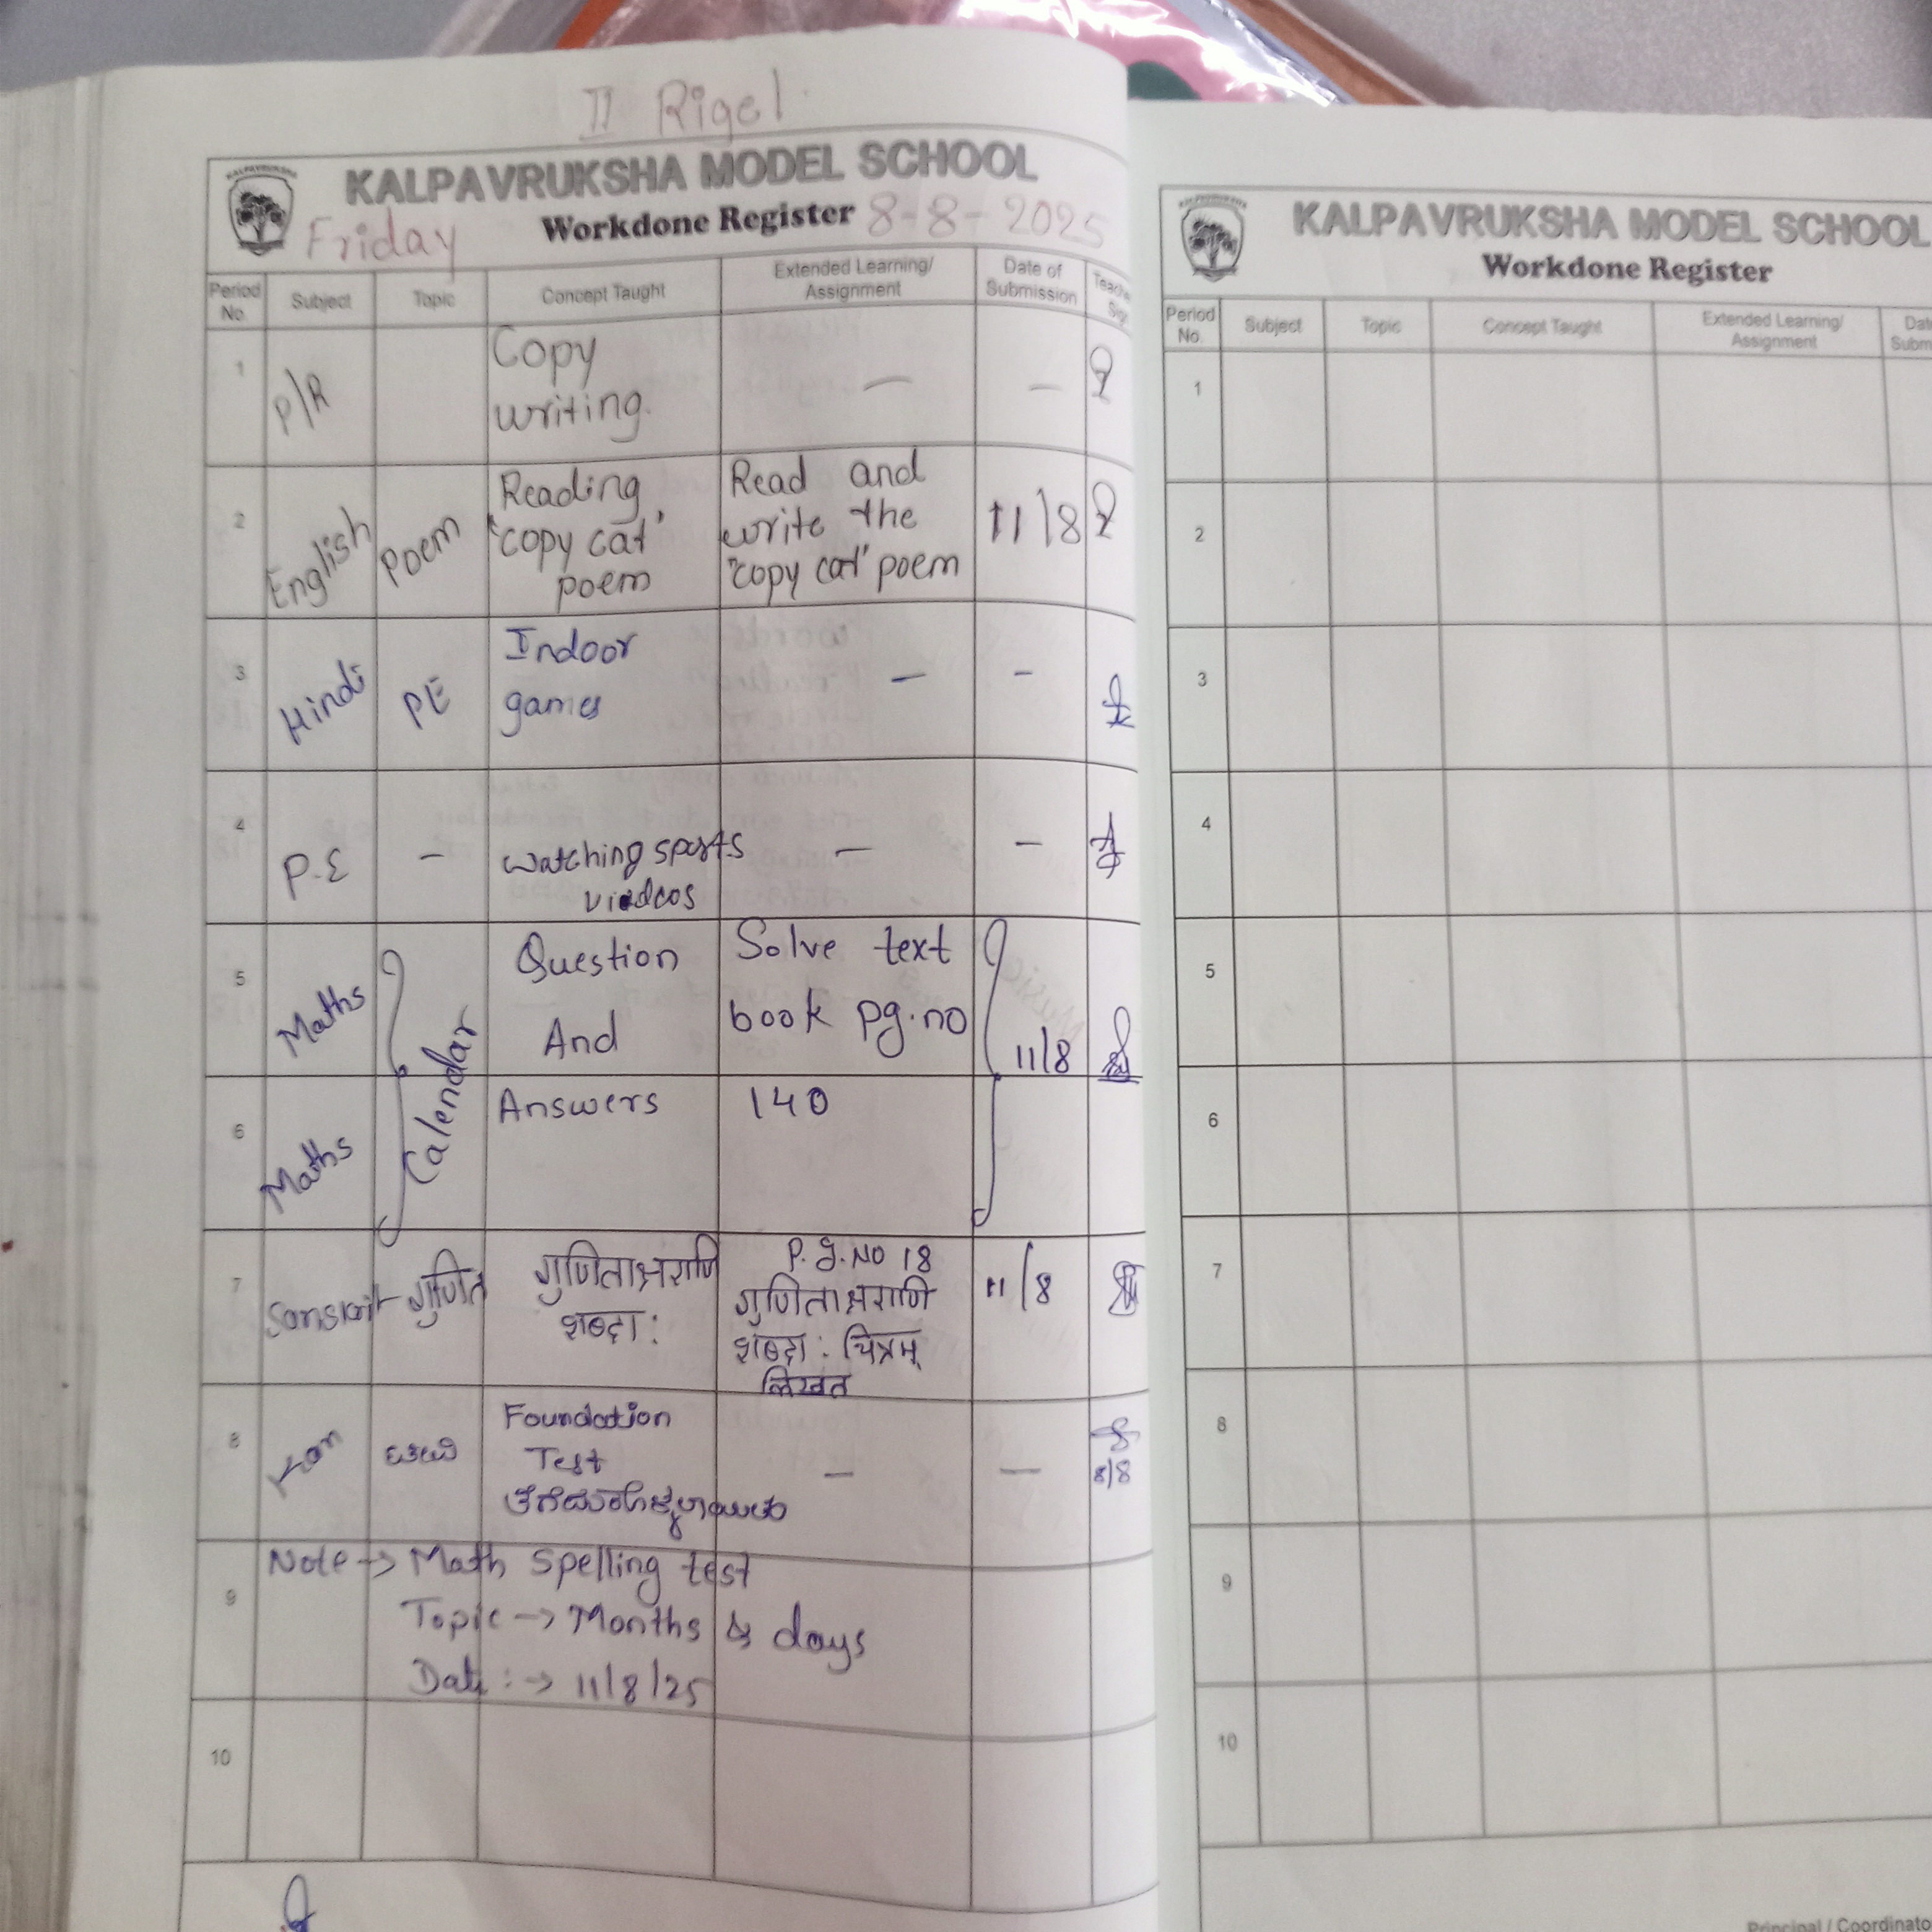 II Rigel
KALPAVRUKSHA MODEL SCHOOL
Friday Workdone Register 8-8-2025
Period No. Subject Topic Concept Taught Extended Learning/ Assignment Date of Submission Teache Sig
1 P/R Copy writing. — —
2 English Poem Reading 'copy cat' poem Read and write the "copy cat" poem 11/8
3 Hindi PE Indoor games — —
4 P.E — watching sports — —
5 Maths Calendar Question And Solve text book pg.no 11/8
6 Maths Answers 140
7 Sanskrit गुणित गुणिताक्षराणि शब्दा: P.g.No 18 गुणिताक्षराणि शब्दा: चित्रम् लिखत 11/8
8 Kan Foundation Test — — 8/8
9 Note -> Math Spelling test
Topic -> Months & days
Date : -> 11/8/25
10
KALPAVRUKSHA MODEL SCHOOL
Workdone Register
Period No. Subject Topic Concept Taught Extended Learning/ Assignment Dat Subm
1
2
3
4
5
6
7
8
9
10
Principal / Coordinato